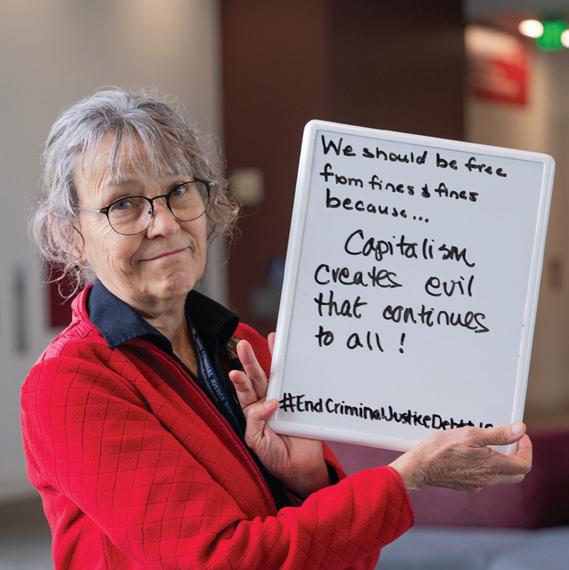 We should be free
from fines & fines
because...
Capitalism
creates evil
that continues
to all!
#EndCriminalJusticeDebt
JUSTICE